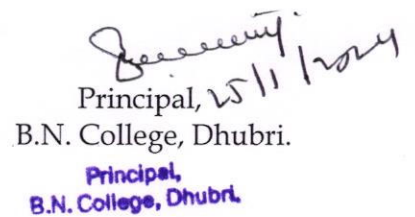 Principal, 25/1/2024
B.N. College, Dhubri.
Principal,
B.N. College, Dhubri.